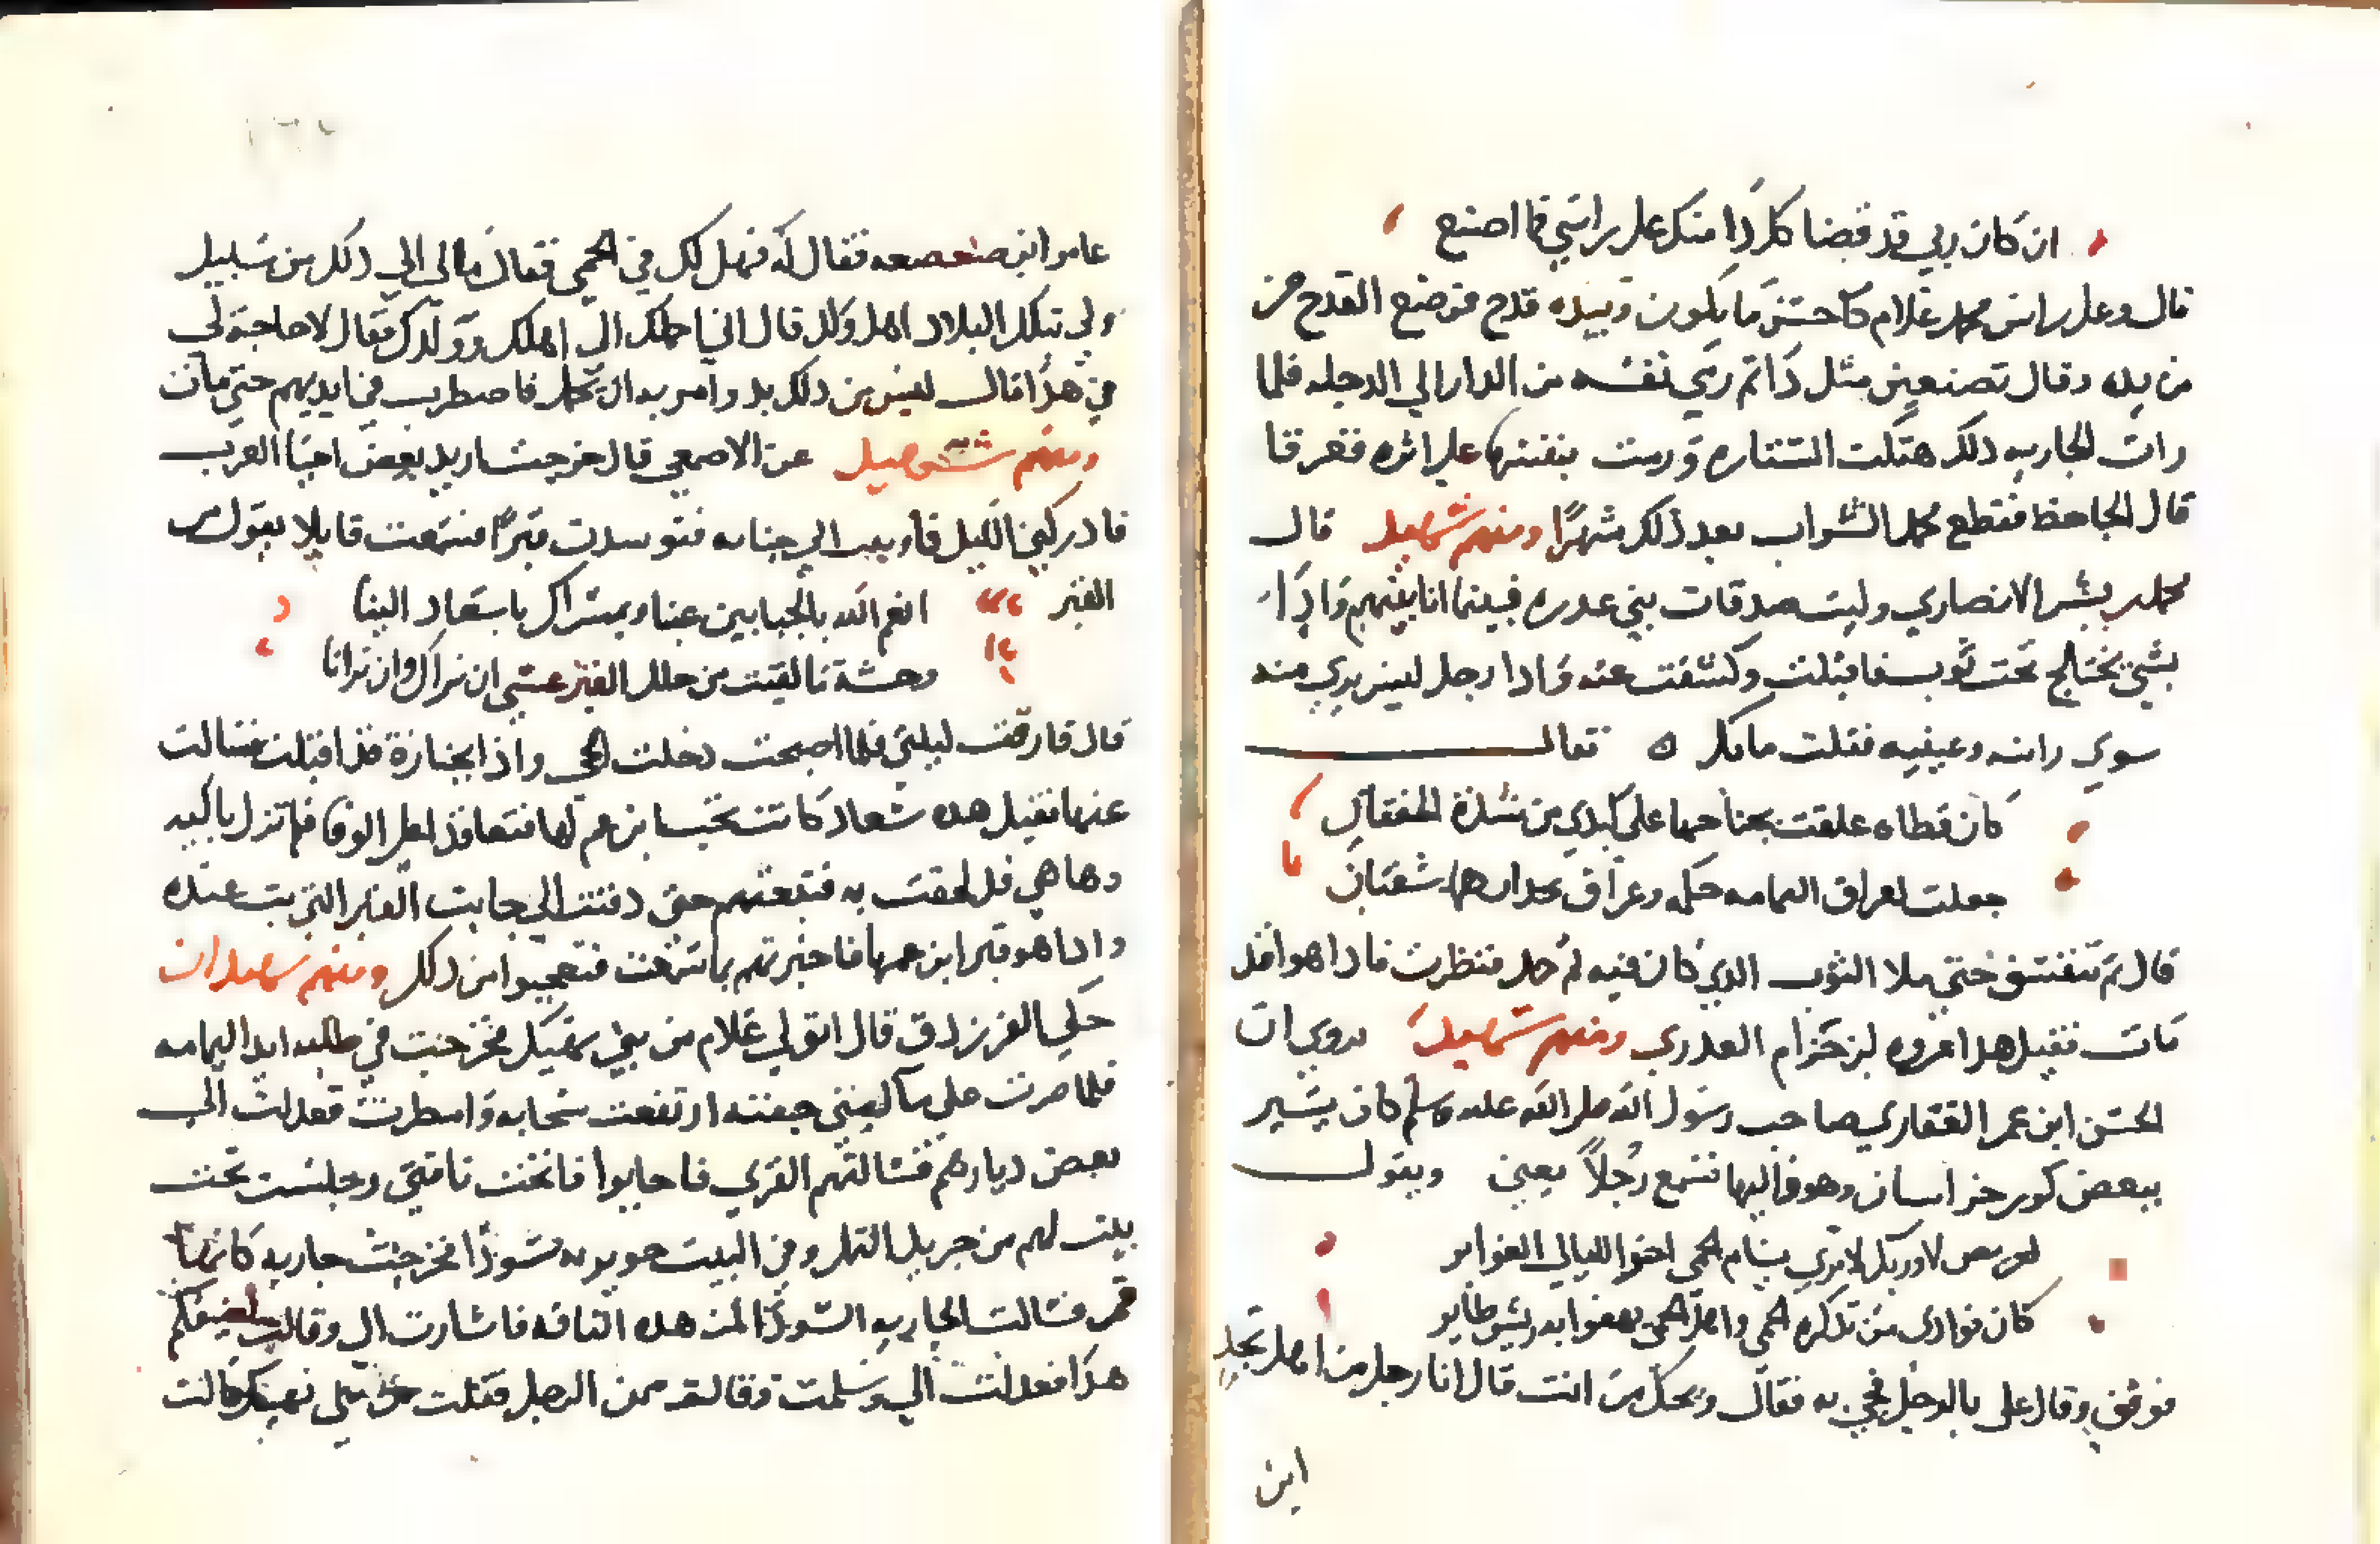 ان كان ربي قد قضا كل ذا منك على راسي فما اصنع
قال وعلى راس محمد غلام كاحسن ما يكون وبيده قدح فوضع القدح من
من يده وقال تصنعين مثل ذا ثم رمى نفسه من الدار الي الدجله فلما
رات الجاريه دلك هتكت الستاره ورمت بنفسها على اثره فغرقا
قال الجاحظ فقطع محمد الشراب بعد ذلك شهرًا ومنهم شهيد قال
محمد بن بشر الانصاري وليت صدقات بني عدره فبينما انا بينهم واذا
بشي يختلج تحت ثوب فاقبلت وكشفت عنه فادا رجل ليس يري منه
سوي راسه وعينيه فقلت ما بك ه فقال
كان قطاه علقت بجناحها على كبدي من شدة الخفقان
جعلت لعراف اليمامه حكمه وعراف نجد ان هما شفيان
قال ثم تنفس حتى ملا الثوب الدي كان فيه ثم خمد فنظرت فادا هو قد
مات فقيل هدا عروه بن حزام العدري ومنهم شهيد يروي ان
الحسن ابن عمر الغفاري صاحب رسول الله صلى الله عليه وسلم كان يسير
ببعض كور خراسان وهو واليها فسمع رجلاً يغني ويقول
لا وربك لا تري بشام الحمى اخرى الليالي الغوابر
كان فوادي من تدكره الحمى واهل الحمى يهفوا به ريش طاير
فوقف وقال علي بالرجل فجي به فقال ويحك من انت قال انا رجل من اهل نجد
ابن
عامر ابن صعصعه فقال له فهل لك في الحمى فقال مالى الي دلك من سبيل
ولي تبلك البلاد اهل وولد قال اني احملك الى اهلك وولدك فقال لا حاجة لي
في هدا قال ليس من دلك بد وامر به ان يحمل فاضطرب في ايديهم حتي مات
ومنهم شهيد عن الاصمعي قال خرجت اريد بعض احيا العرب
فادركني الليل فاويت الي جبانه فتوسدت قبرًا فسمعت قايلا يقول من
القبر انعم الله بالحبايبن عينا وبمسراك يا سعاد الينا
وحشة ما لقيت من خلل القبر عسي ان نراك وان ترانا
قال فارقت ليلتي فلما اصبحت دخلت الحي واذا بجنازة قد اقبلت فسالت
عنها فقيل هده سعاد كانت تحب ابن عم لها فتعاقدا على الوفا فلم تزل باكيه
وها هي قد لحقت به فتبعتهم حتى دفنت الي جانب القبر التي بت عنده
وادا هو قبر ابن عمها فاخبرتهم بما سمعت فتعجبوا من دلك ومنهم شهيدان
حكي الفرزدق قال ابق لي غلام من بني نهشل فخرجت في طلبه اريد اليمامه
فلما صرت على ما لبني حنيفه ارتفعت سحابه وامطرت فعدلت الى
بعض ديارهم فسالتهم القري فاجابوا فانخت ناقتي وجلست تحت
بيت لهم من جريد النخل وفي البيت جويريه سودا فخرجت جاريه كانها
قمر فسالت الجاريه السودا لمن هده الناقه فاشارت الى وقالت لضيفكم
هذا فعدلت الي وسلمت وقالت ممن الرجل فقلت من بني نهشل قالت